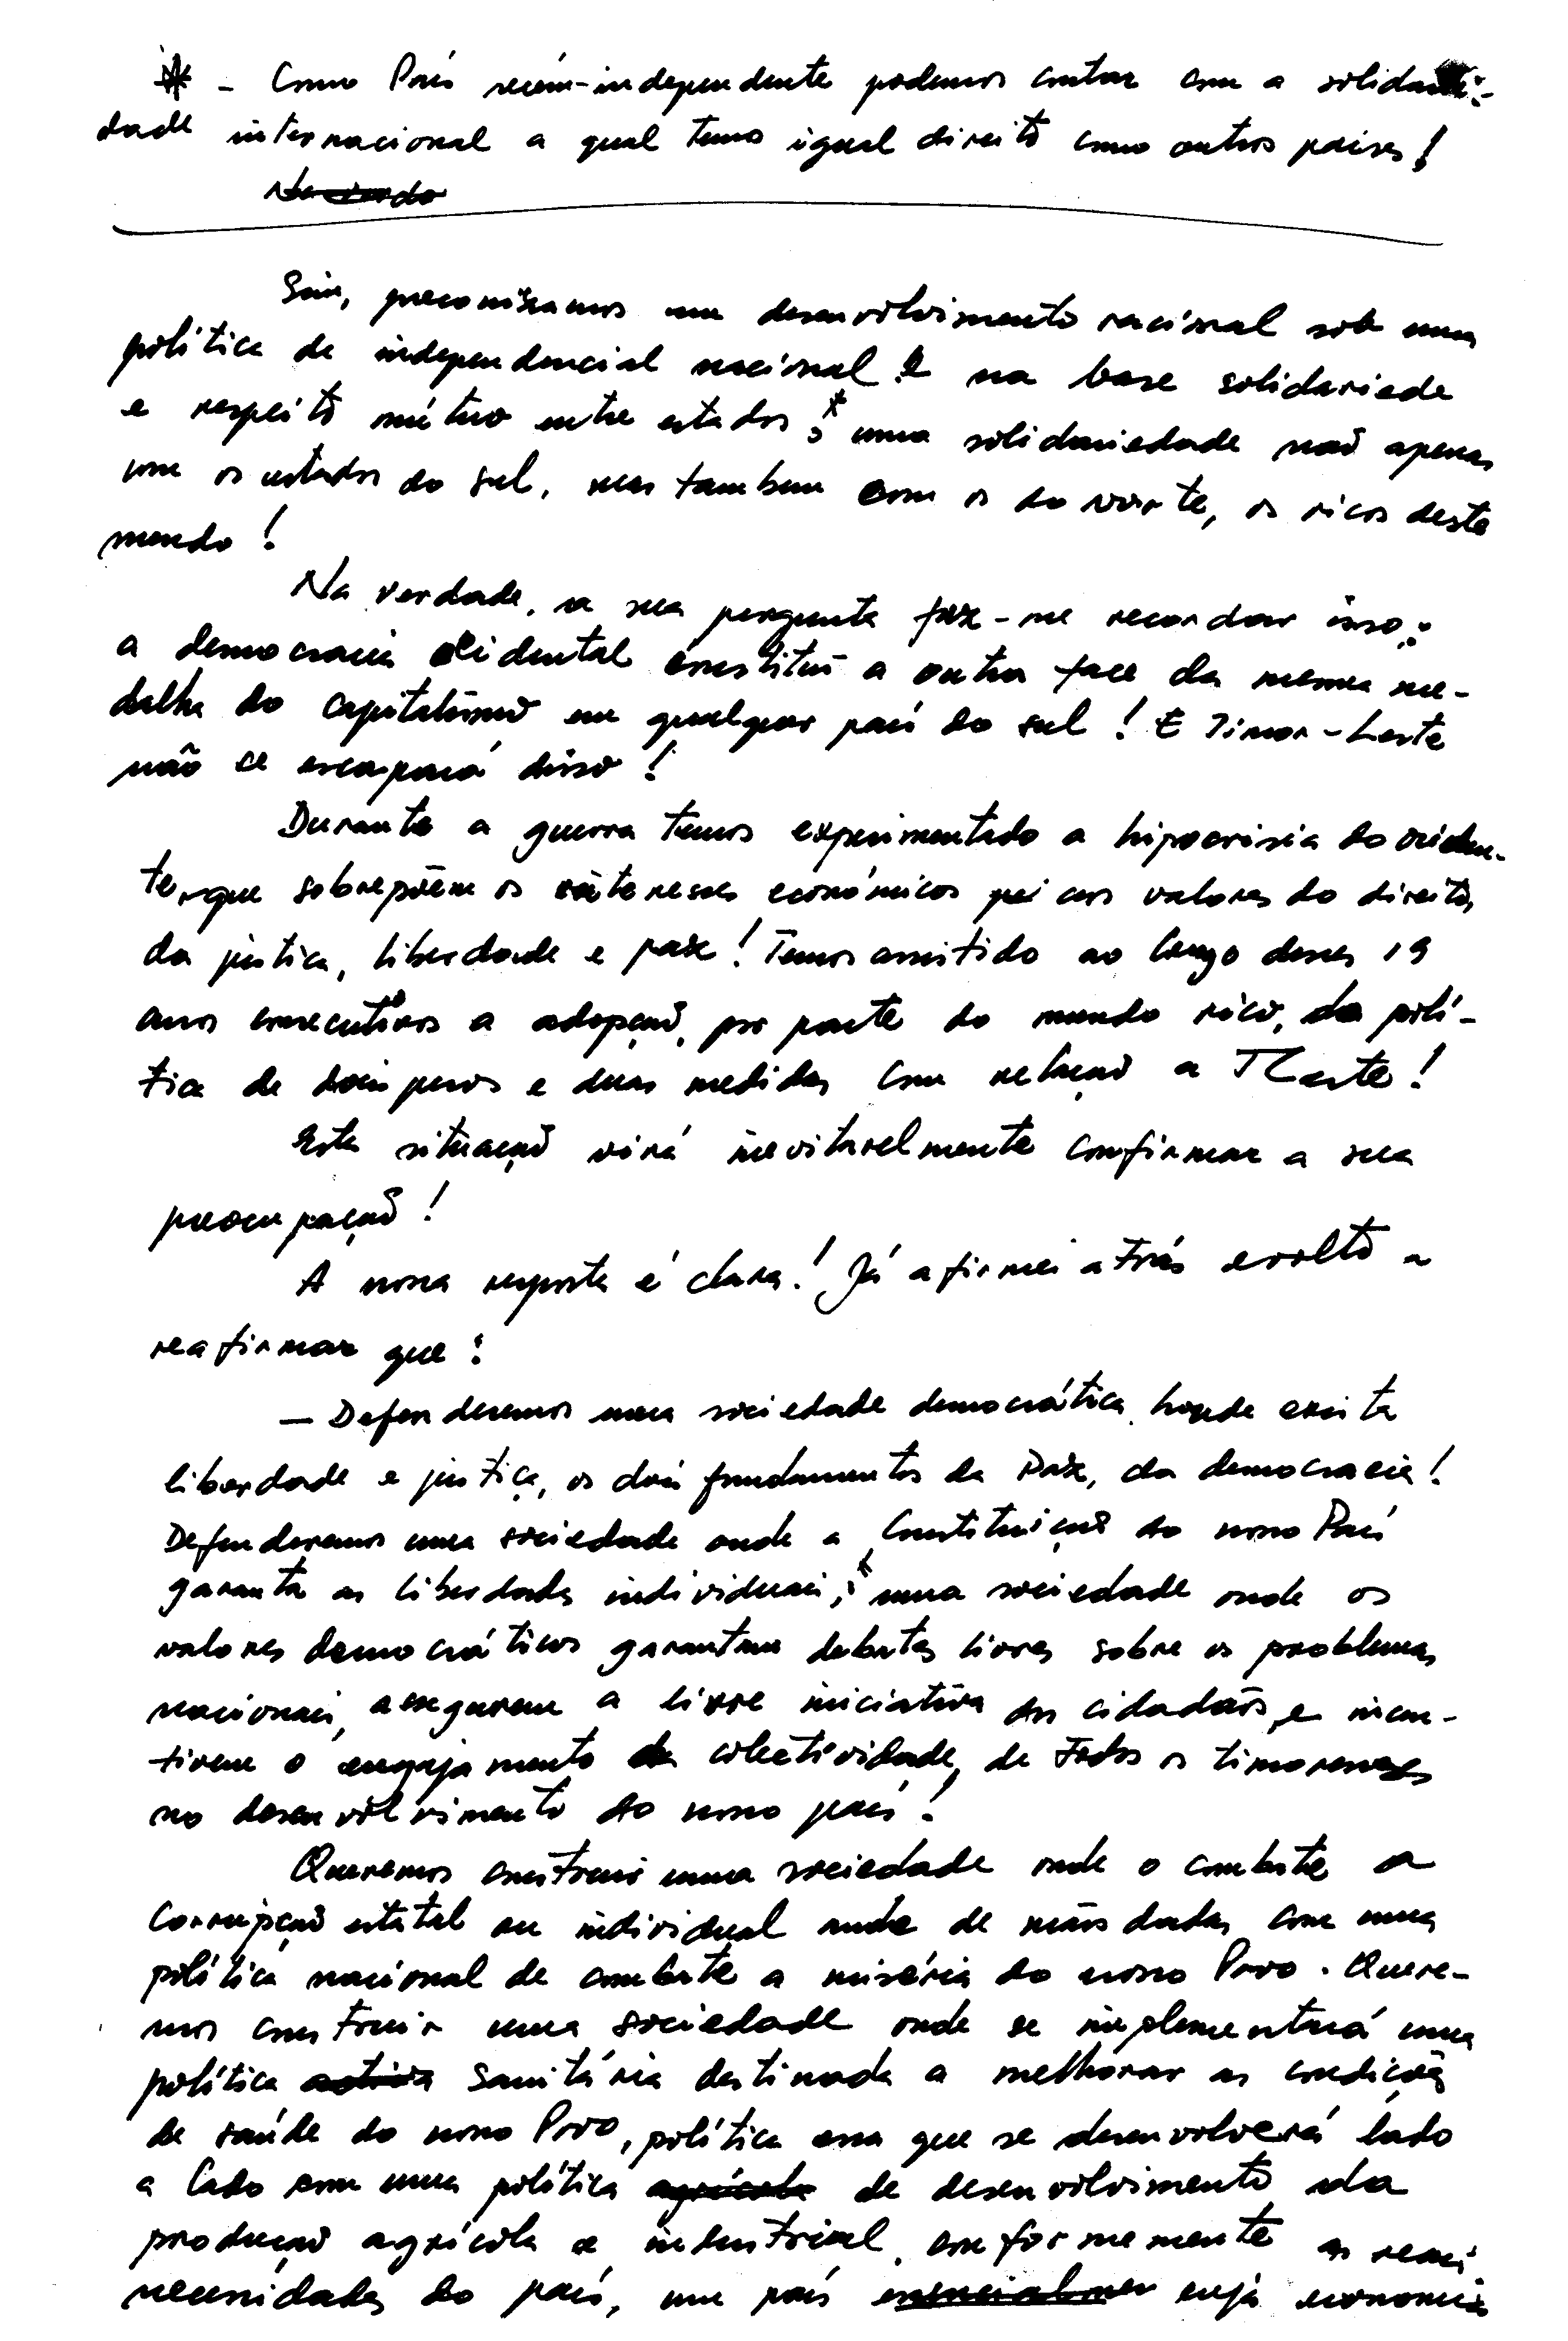 * - Como País recém-independente podemos contar com a solidarie-
dade internacional a qual temos igual direito como outros países!
Sim, preconizamos um desenvolvimento nacional sob uma
política de independencial nacional e na base solidariede
e respeito mútuo entre estados; * uma solidariedade não apenas
com os estados do sul, mas tambem com os do norte, os ricos deste
mundo!
Na verdade, a sua pergunta faz-me recordar isso:
a democracia ocidental constitui a outra face da mesma me-
dalha do capitalismo em qualquer país do sul! E Timor-Leste
não se escapará disso!
Durante a guerra temos experimentado a hipocrisia do ociden-
te, que sobrepõem os interesses económicos aos valores do direito,
da justica, liberdade e paz! Temos assistido ao longo desses 19
anos consecutivos a adopção, por parte do mundo rico, da polí-
tica de dois pesos e duas medidas com relação a TLeste!
Esta situação virá inevitavelmente confirmar a sua
preocupação!
A nossa resposta é clara! Já afirmei atrás e volto a
reafirmar que:
— Defenderemos uma sociedade democrática, honde exista
liberdade e justiça, os dois fundamentos da Paz, da democracia!
Defenderemos uma sociedade onde a Constituição do nosso País
garanta as liberdades individuais; * uma sociedade onde os
valores democráticos garantam debates livres sobre os problemas
nacionais, assegurem a livre iniciativa dos cidadãos, e incen-
tivem o engajamento da colectividade, de todos os timorenses
no desenvolvimento do nosso país!
Queremos construir uma sociedade onde o combate a
corrupção estatal ou individual ande de mãos dadas com uma
política nacional de combate a miséria do nosso Povo. Quere-
mos construir uma sociedade onde se implementará uma
política sanitária destinada a melhorar as condições
de saúde do nosso Povo, política essa que se desenvolverá lado
a lado com uma política de desenvolvimento da
produção agrícola e industrial, conformemente as reais
necessidades do país, um país cuja economia